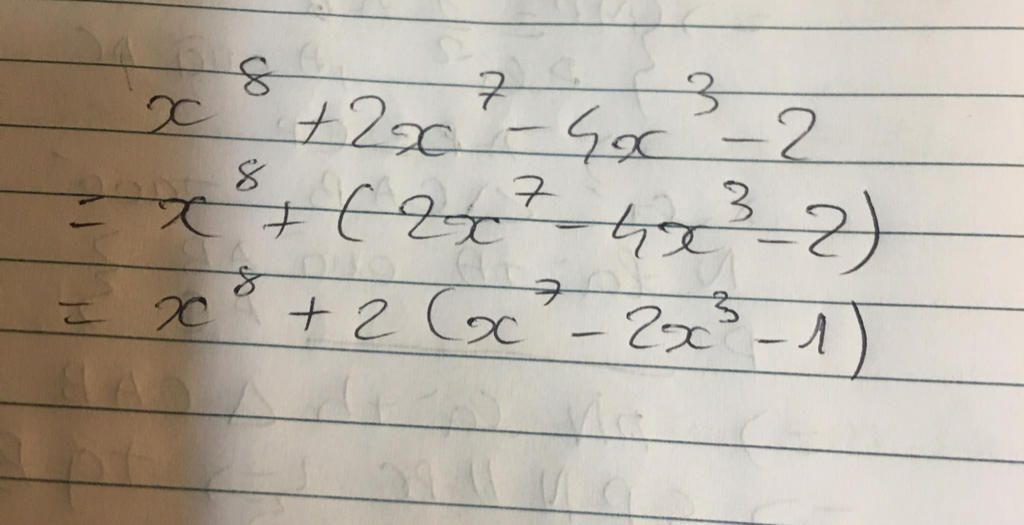 x⁸ + 2x⁷ - 4x³ - 2
= x⁸ + (2x⁷ - 4x³ - 2)
= x⁸ + 2(x⁷ - 2x³ - 1)